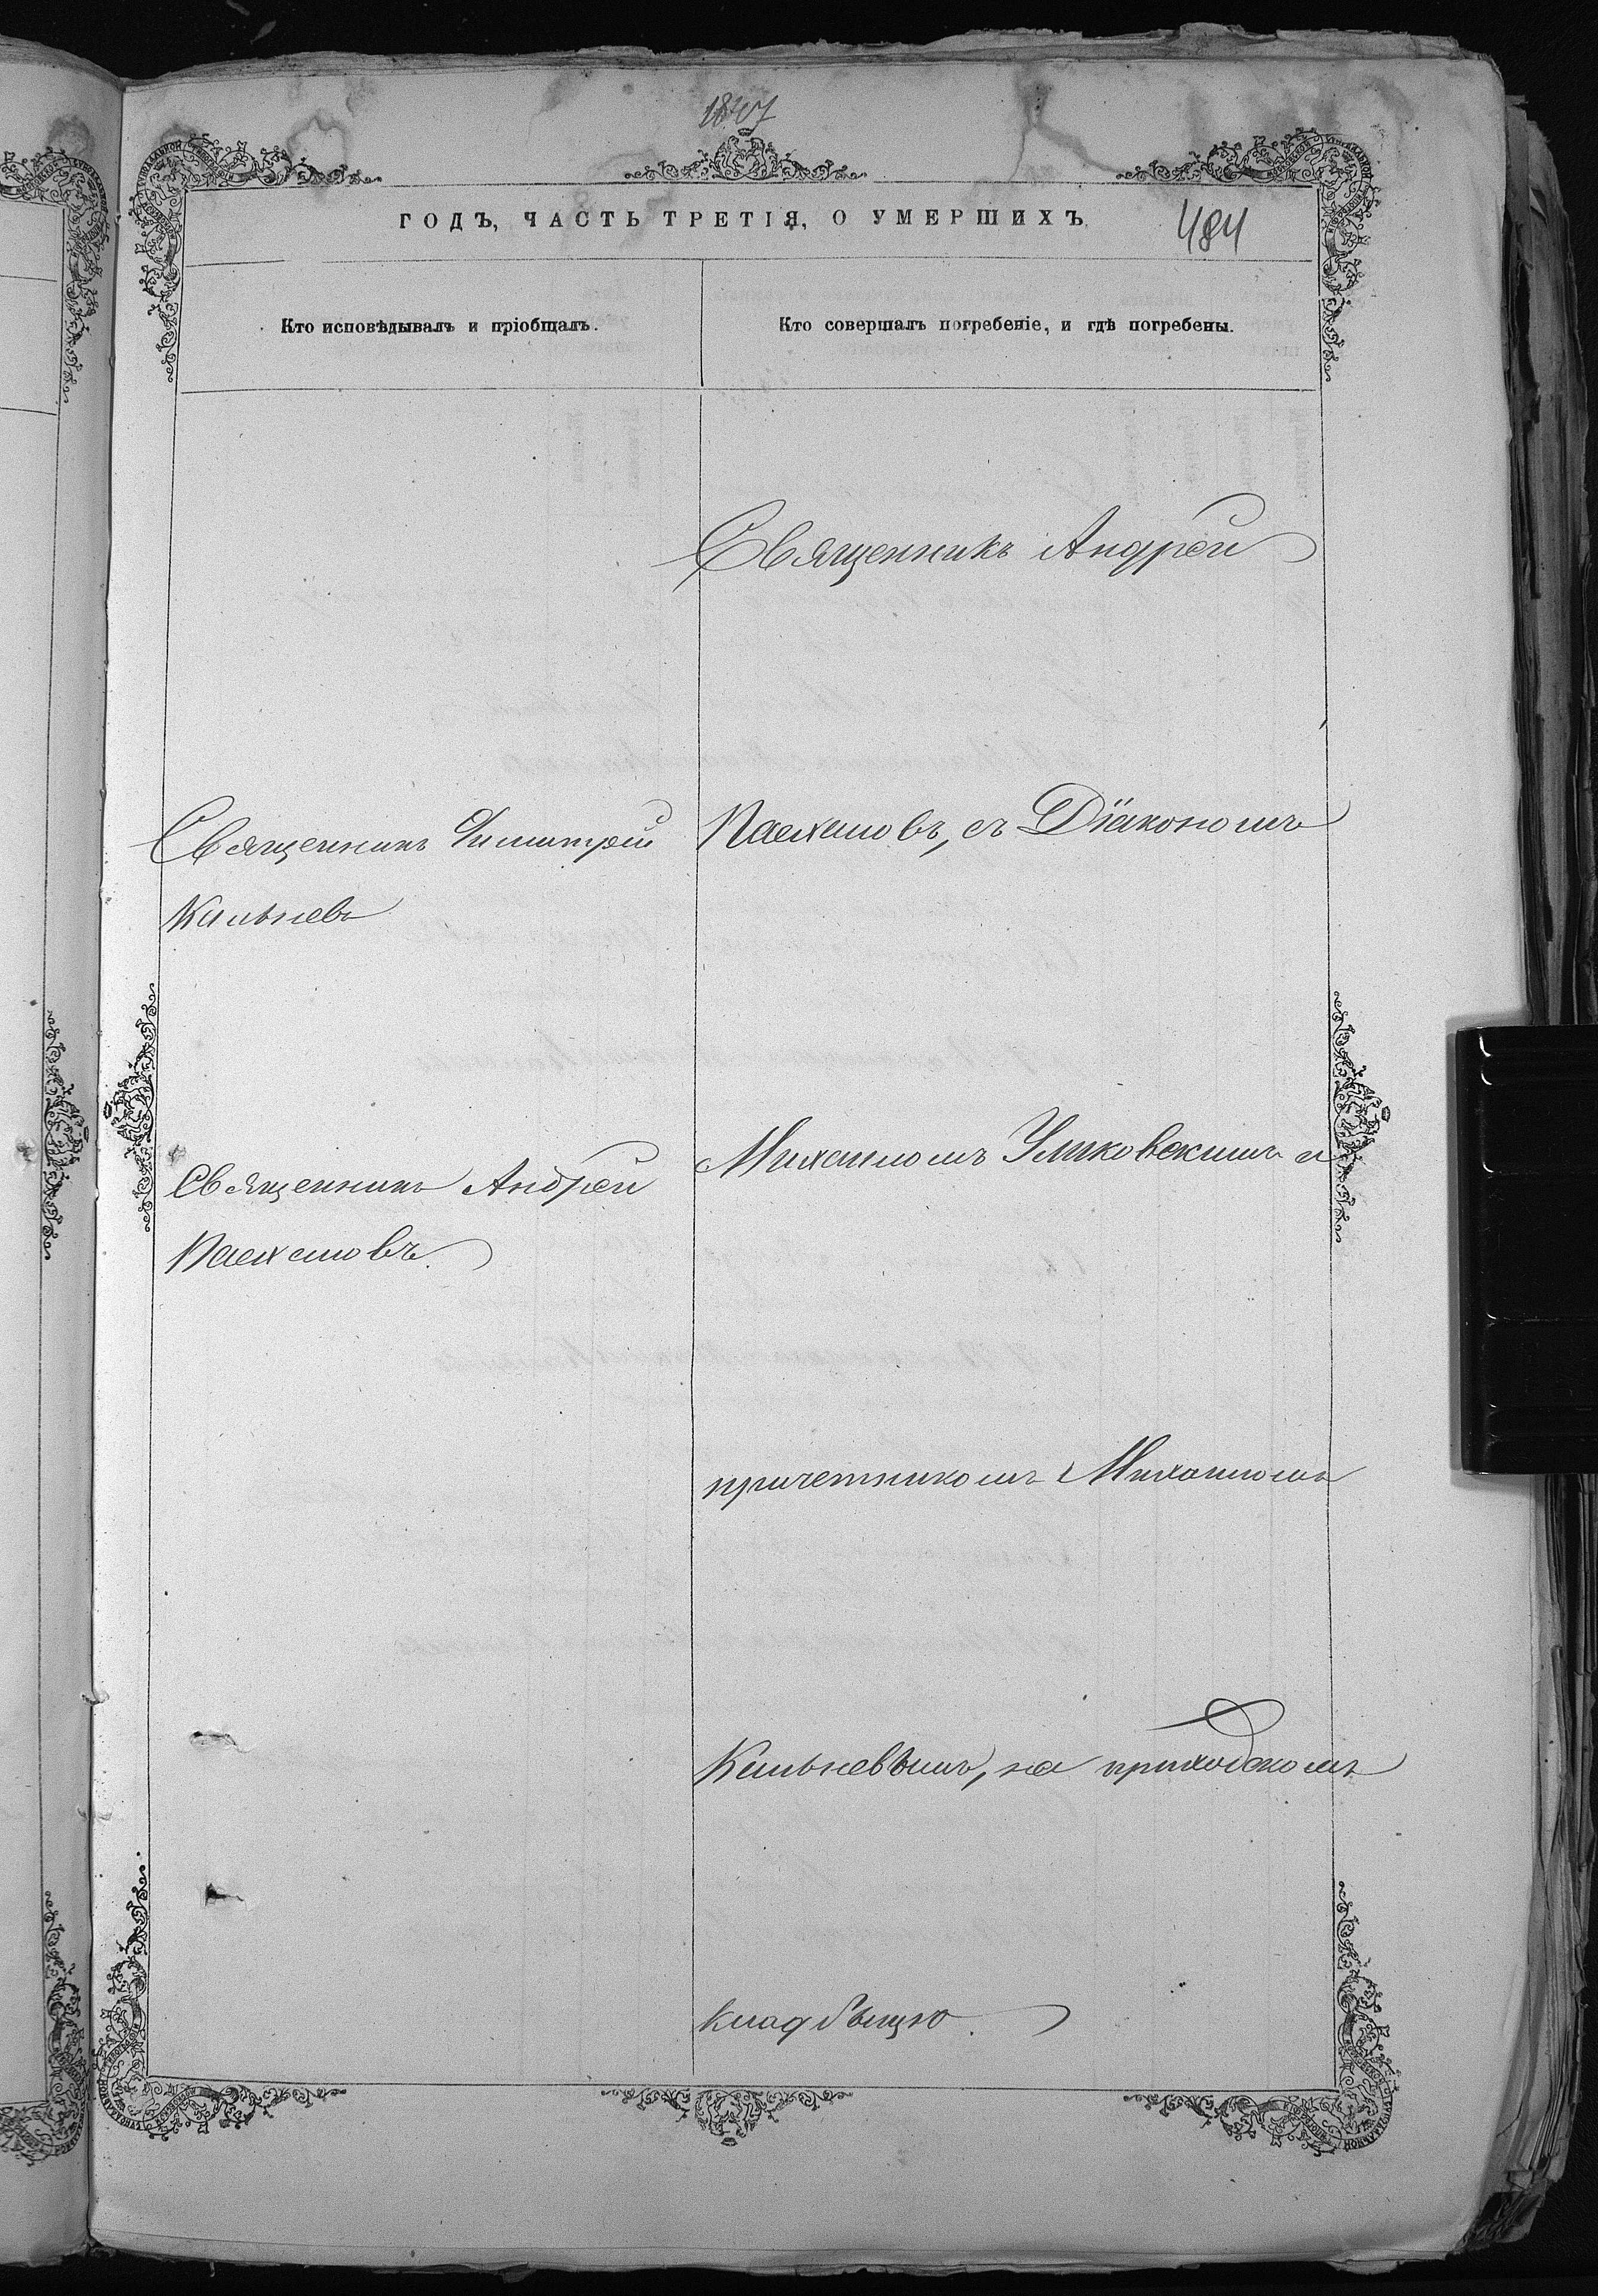 18
484
ГОДЪ, ЧАСТЬ ТРЕТІЯ, О УМЕРШИХЪ
Кто исповѣдывалъ и пріобщалъ.
Кто совершалъ погребеніе, и гдѣ погребены.
Священникъ Димитрій
Кальневъ
Священникъ Андрей
Пасхаловъ.
Священникъ Андрей
Пасхаловъ, съ Діякономъ
Михаиломъ Уликовскимъ и
причетникомъ Михаиломъ
Кальневымъ, на приходскомъ
кладбищѣ.